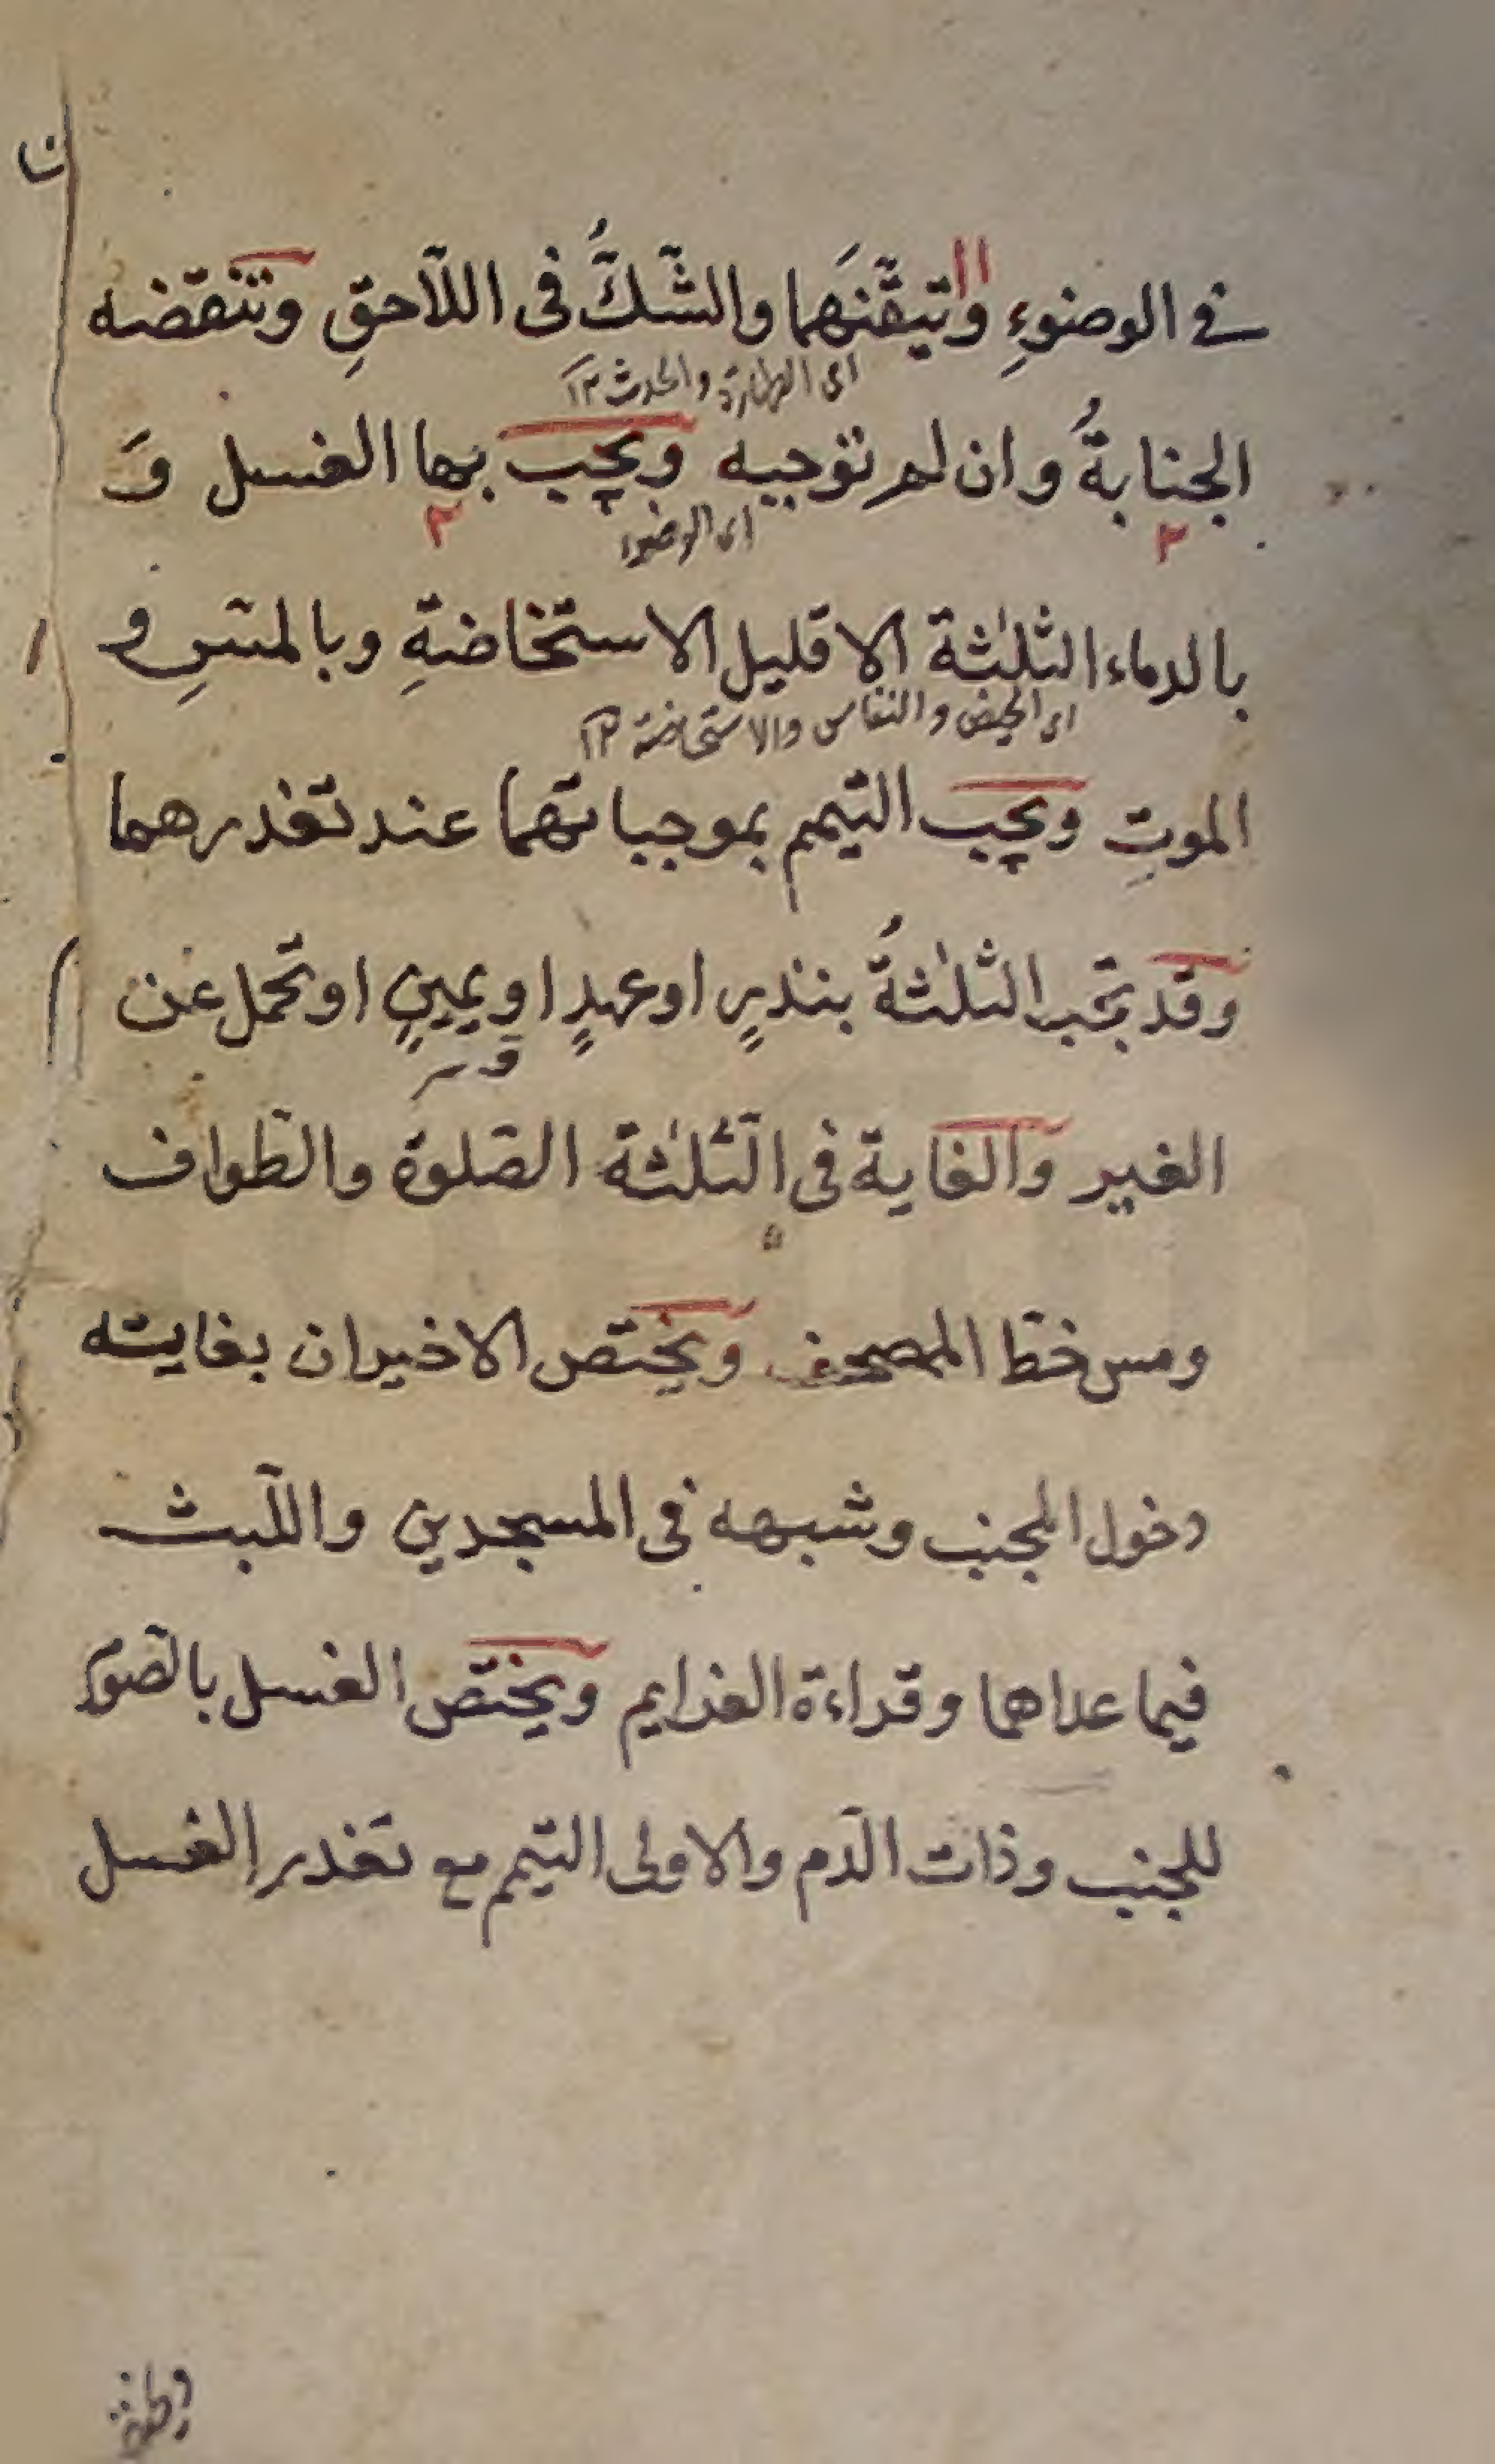 في الوضوءِ وتيقّنَهما والشّكُّ فى اللّاحقِ وتنقضه
اى الطهارة والحدث ١٢
الجنابةُ وان لم توجبه ويجب بها الغسل وَ
اى الوضوء
٢ ٢
بالدماء الثلٰثة الا قليل الاستخاضةِ وبالمسِّ و
اى الحيض والنفاس والاستحاضة ١٢
الموتِ ويجب التيمم بموجباتهما عند تعذرهما
وقد تجب الثلٰثةُ بنذرٍ او عهدٍ او يمينٍ او تحمل عن
الغير والغاية فى الثّلٰثة الصّلوة والطّواف
ومس خطّ المصحف ويختص الاخيران بغايته
دخول المجنب وشبهه فى المسجدين واللّبث
فيما عداهما وقراءة العزايم ويختصّ الغسل بالصّوم
للجنب وذات الدّم والاولى التيمم مع تعذر الغسل